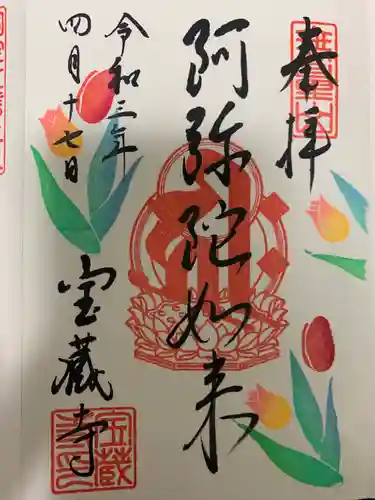 奉拝
阿弥陀如来
令和三年
四月十七日
宝蔵寺